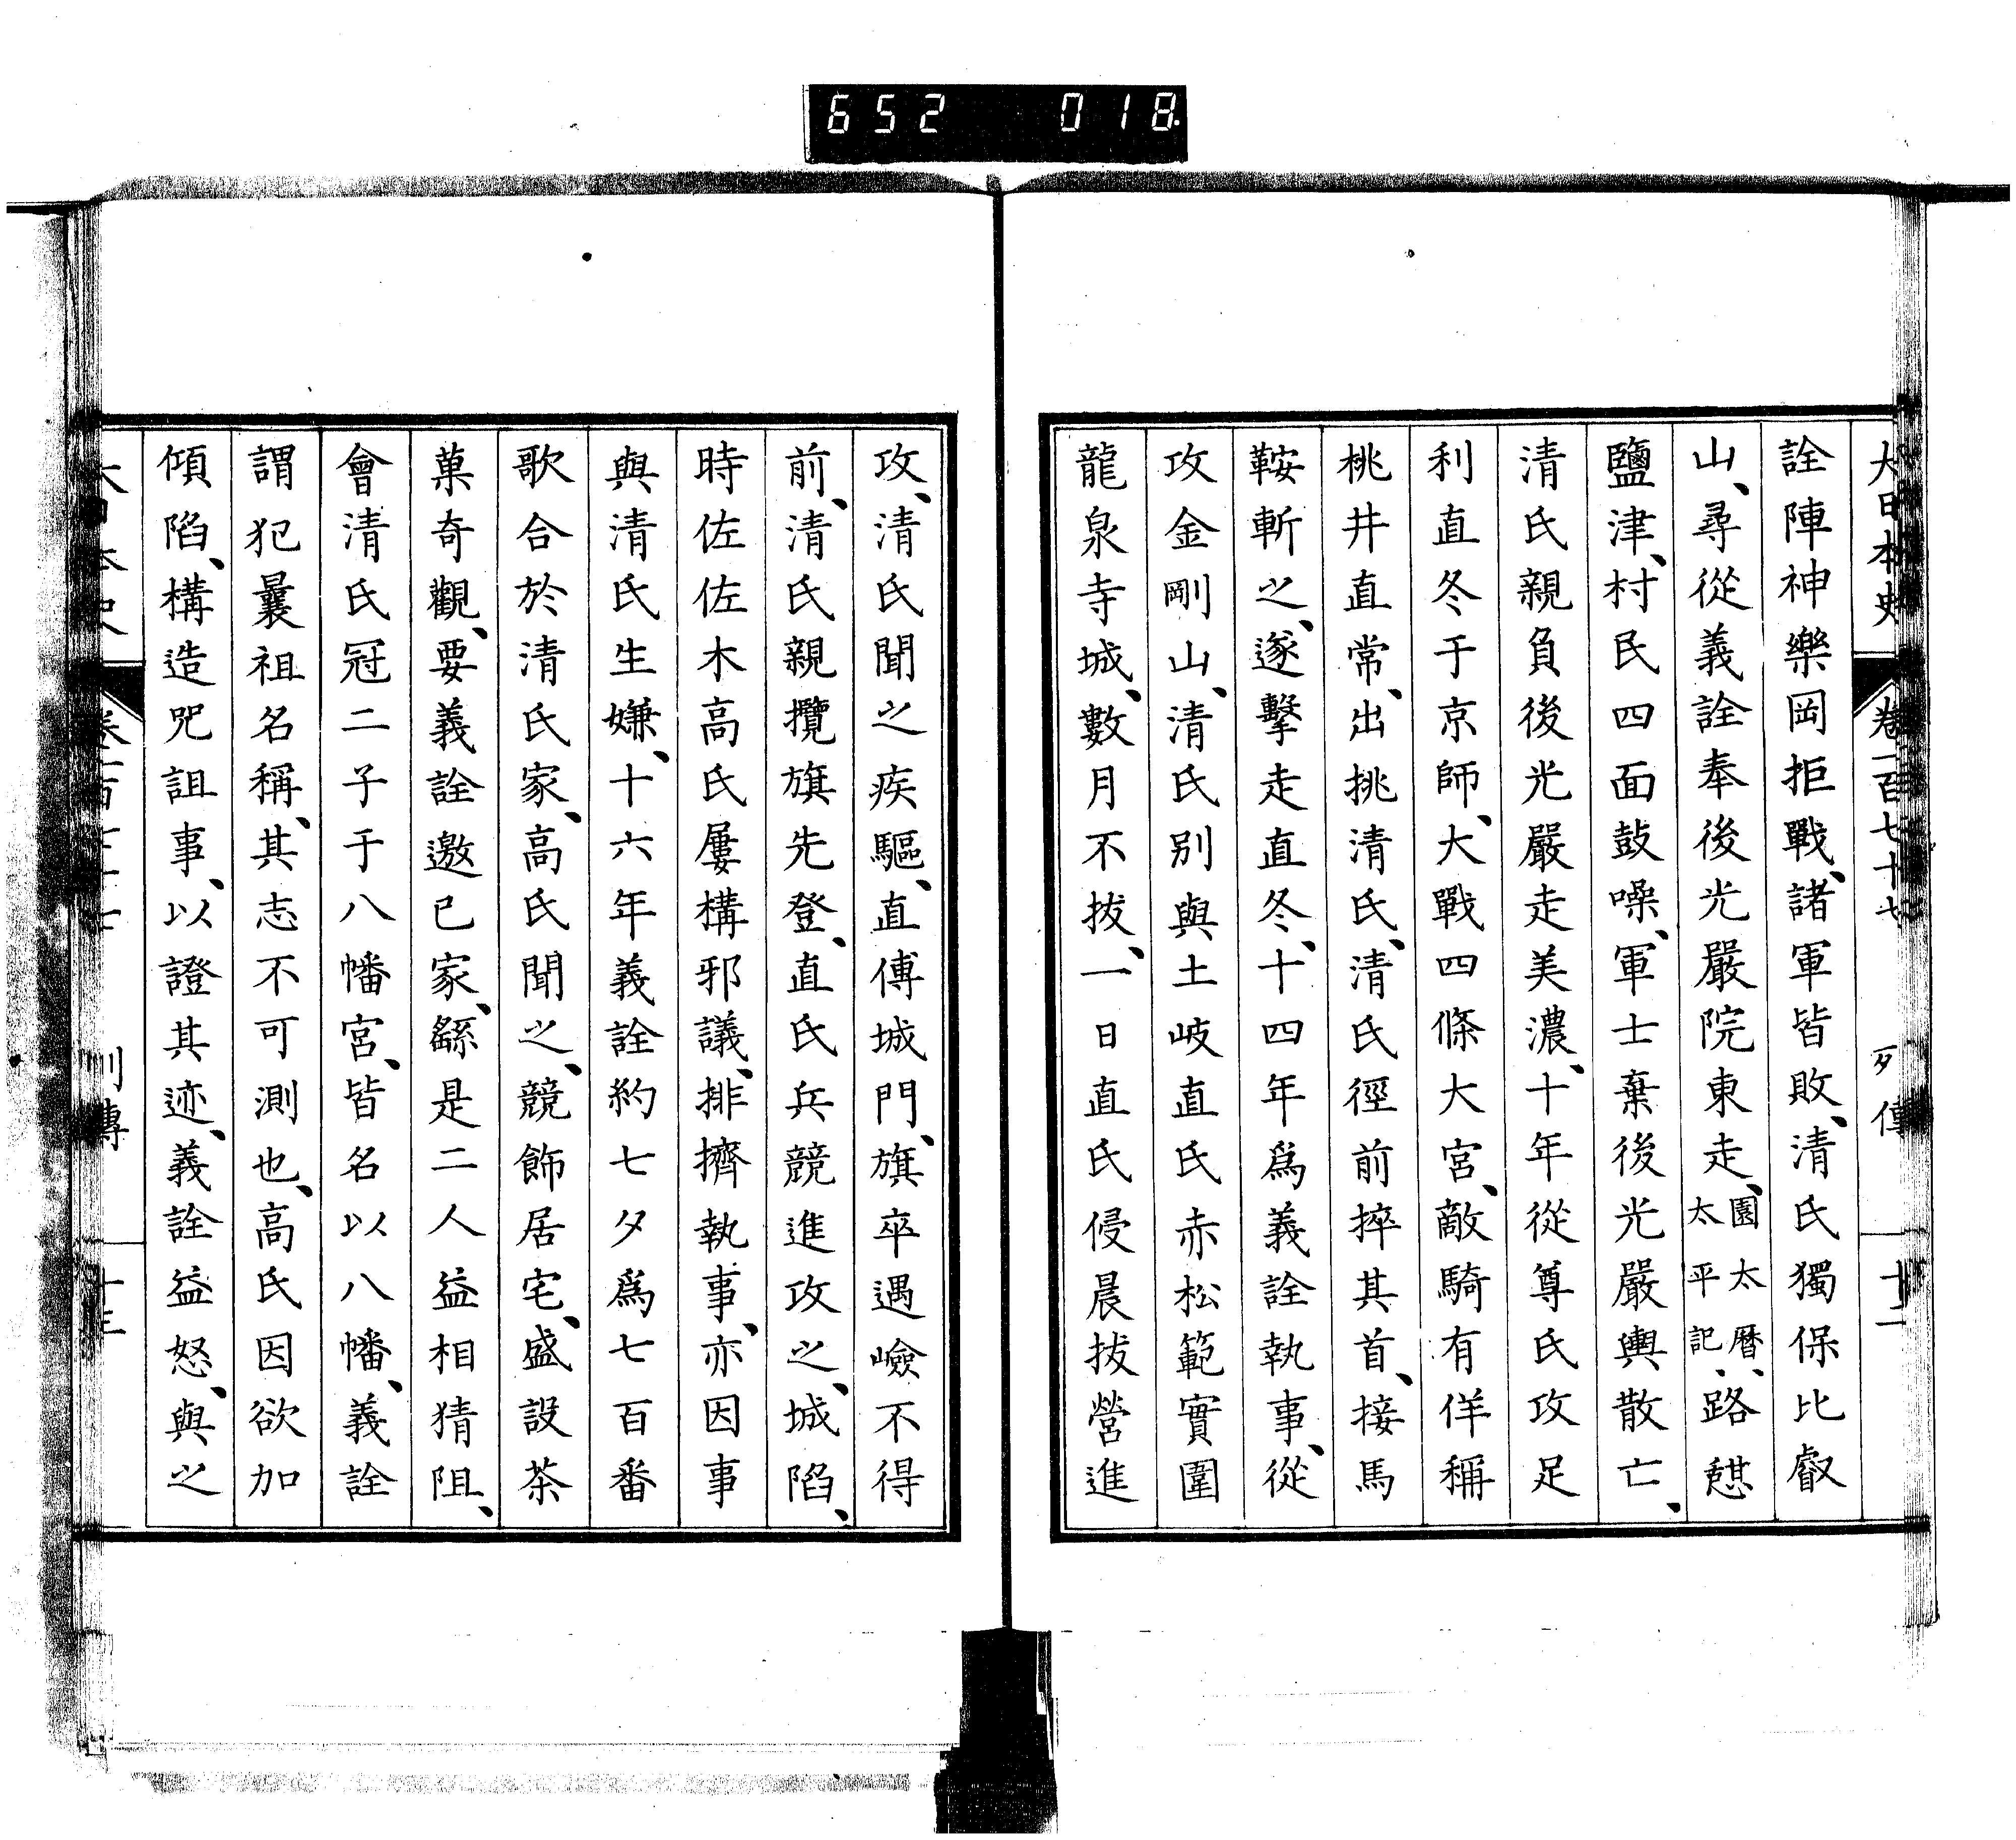 652 018
大日本史 卷一百七十七 列傳 十二
詮陣神樂岡拒戰、諸軍皆敗、清氏獨保比叡
山、尋從義詮奉後光嚴院東走、園太曆、太平記、路憇
鹽津、村民四面鼓噪、軍士棄後光嚴輿散亡、
清氏親負後光嚴走美濃、十年從尊氏攻足
利直冬于京師、大戰四條大宮、敵騎有佯稱
桃井直常、出挑清氏、清氏徑前捽其首、接馬
鞍斬之、遂擊走直冬、十四年爲義詮執事、從
攻金剛山、清氏別與土岐直氏赤松範實圍
龍泉寺城、數月不拔、一日直氏侵晨拔營進
攻、清氏聞之疾驅、直傅城門、旗卒遇嶮不得
前、清氏親攬旗先登、直氏兵競進攻之、城陷、
時佐佐木高氏屢構邪議、排擠執事、亦因事
與清氏生嫌、十六年義詮約七夕爲七百番
歌合於清氏家、高氏聞之、競飾居宅、盛設茶
菓奇觀、要義詮邀己家、繇是二人益相猜阻、
會清氏冠二子于八幡宮、皆名以八幡、義詮
謂犯曩祖名稱、其志不可測也、高氏因欲加
傾陷、構造咒詛事、以證其迹、義詮益怒、與之
大日本史 卷一百七十七 列傳 十三